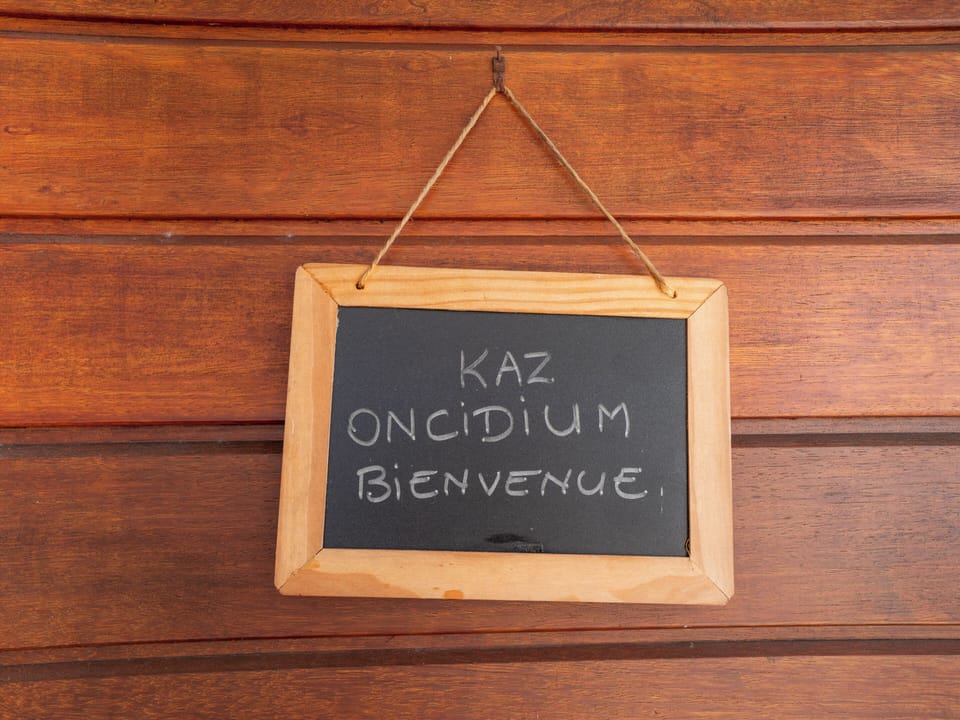 KAZ
ONCiDiUM
BiENVENUE.